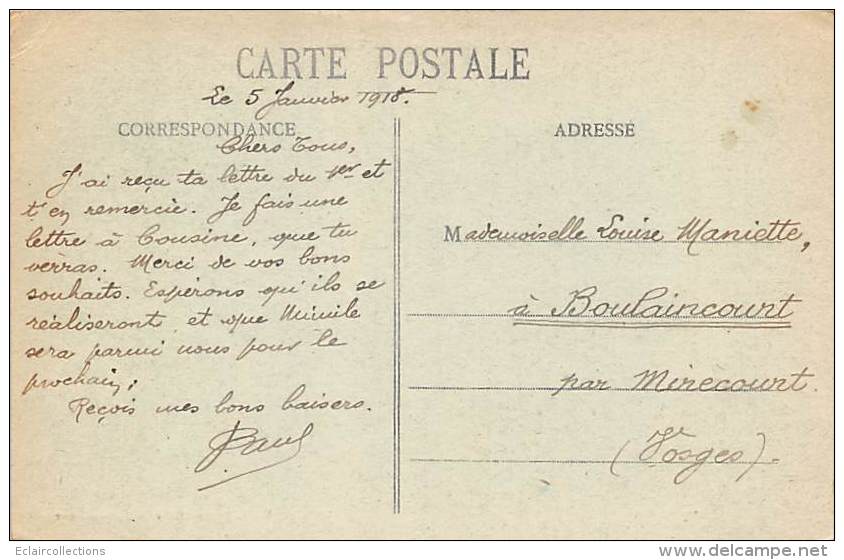 CARTE POSTALE
Le 5 Janvier 1918.
CORRESPONDANCE
Chers Tous,
J'ai reçu ta lettre du 1er et
t'en remercie. Je fais une
lettre à Cousine, que tu
verras. Merci de vos bons
souhaits. Espérons qu'ils se
réaliseront et que Mimile
sera parmi nous pour le
prochain.
Reçois mes bons baisers.
Paul
ADRESSE
Mademoiselle Louise Maniette,
à Boulaincourt
par Mirecourt.
(Vosges).
Eclaircollections
www.delcampe.net